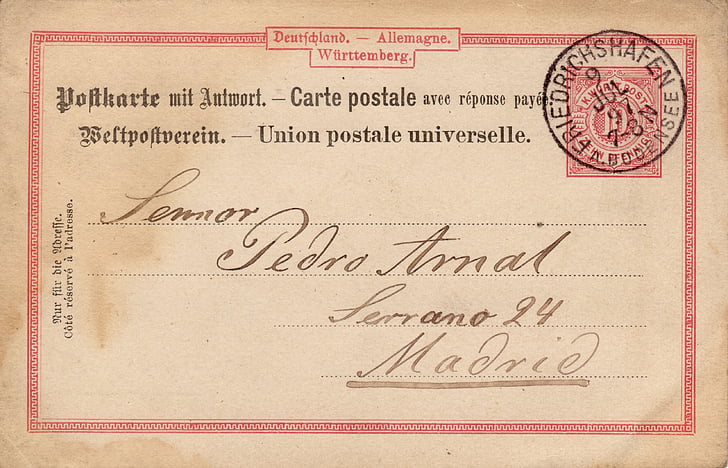 Deutschland. — Allemagne.
Württemberg.
Postkarte mit Antwort. — Carte postale avec réponse payée
Weltpostverein. — Union postale universelle.
FRIEDRICHSHAFEN
9
7-8 N
A. BODENSEE
K. WÜRTT. POST
Nur für die Adresse.
Côté réservé à l'adresse.
Sennor
Pedro Arnal
Serrano 24
Madrid